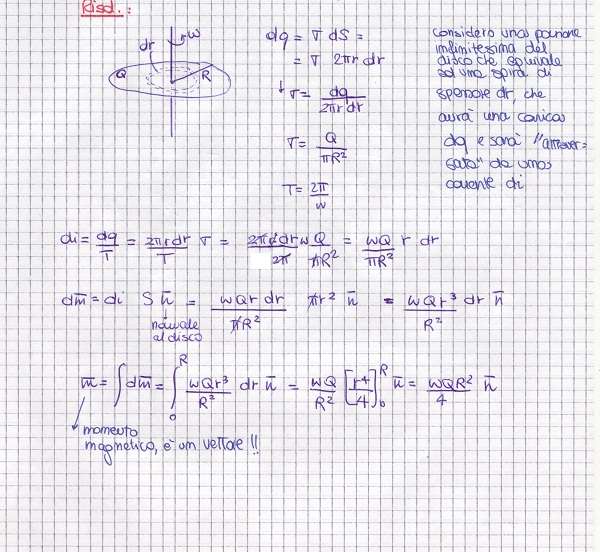 Risol.:
ω
dr r
Q R
dq = σ dS =
= σ 2πr dr
↓ σ = dq / 2πr dr
σ = Q / πR²
T = 2π / ω
considero una porzione
infinitesima del
disco che equivale
ad una spira di
spessore dr, che
avrà una carica
dq e sarà "attraver=
sata" da una
corrente di
di = dq / T = 2πr dr / T σ = 2πr dr ω / 2π Q / πR² = ωQ / πR² r dr
dm̄ = di S n̄ = ωQr dr / πR² πr² n̄ = ωQr³ / R² dr n̄
↓
normale
al disco
m̄ = ∫dm̄ = ∫₀ᴿ ωQr³ / R² dr n̄ = ωQ / R² [r⁴ / 4]₀ᴿ n̄ = ωQR² / 4 n̄
momento
magnetico, è un vettore !!